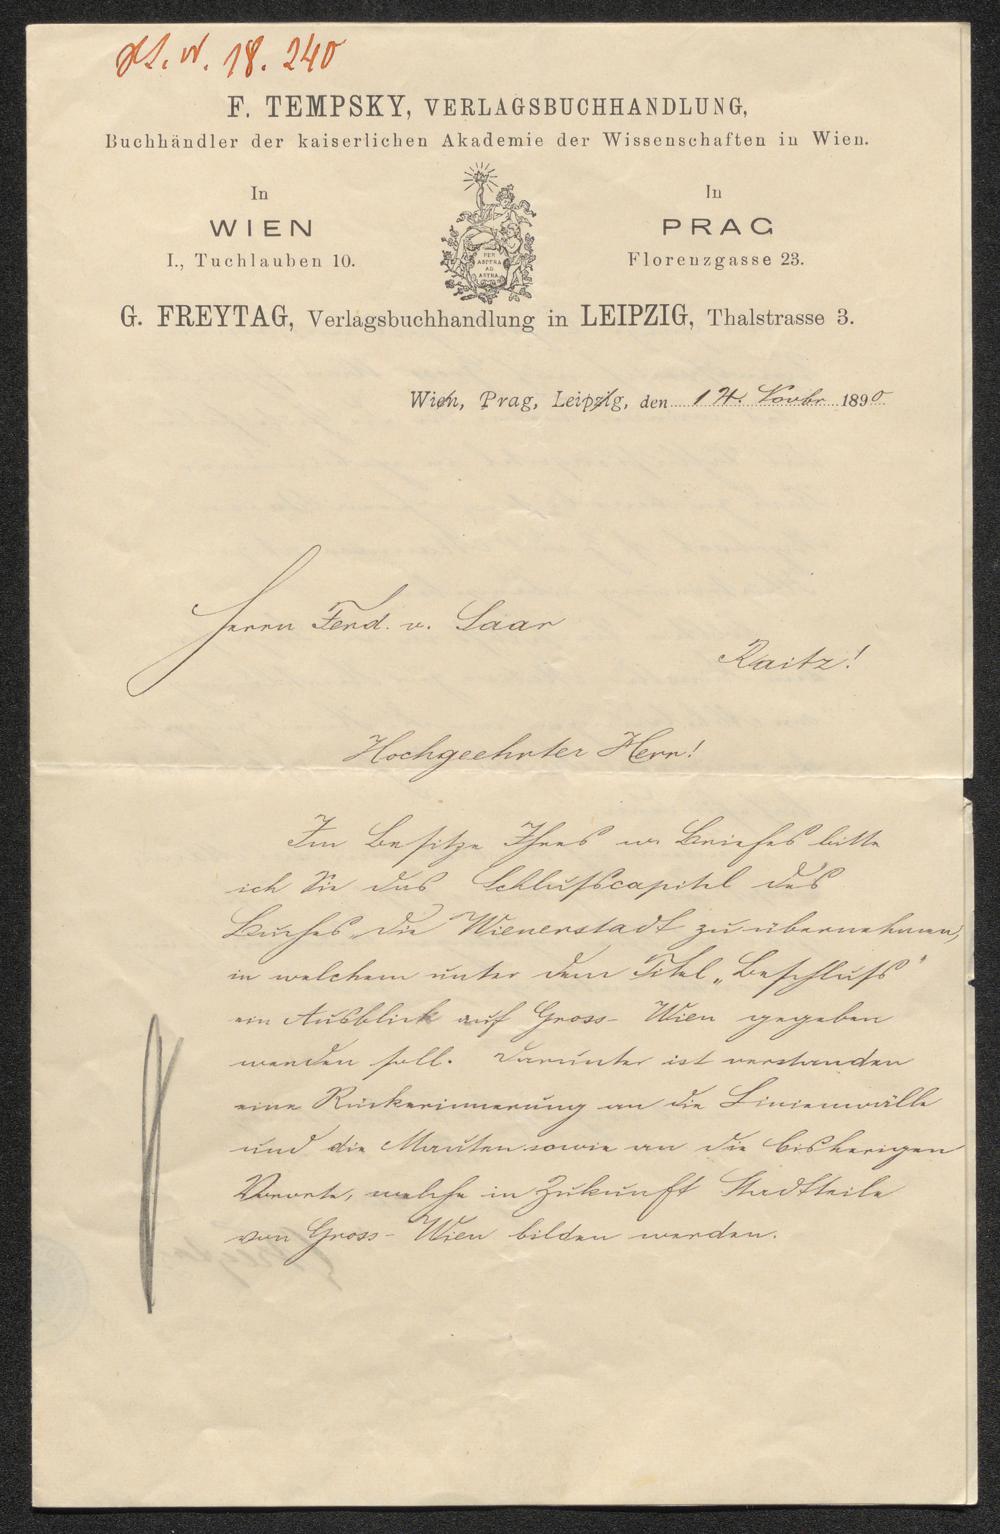 J. N. 18.240
F. TEMPSKY, VERLAGSBUCHHANDLUNG,
Buchhändler der kaiserlichen Akademie der Wissenschaften in Wien.
In
WIEN
I., Tuchlauben 10.
PER
ASPERA
AD
ASTRA
In
PRAG
Florenzgasse 23.
G. FREYTAG, Verlagsbuchhandlung in LEIPZIG, Thalstrasse 3.
Wien, Prag, Leipzig, den 14. Novbr 1890
Herrn Ferd. v. Saar
Raitz!
Hochgeehrter Herr!
Im Besitze Ihres w. Briefes bitte
ich Sie das Schlußcapitel des
Buches „Die Wienerstadt zu übernehmen,
in welchem unter dem Titel „Beschluß“
ein Ausblick auf Gross-Wien gegeben
werden soll. Darunter ist verstanden
eine Rückerinnerung an die Linienwälle
und die Mauten sowie an die bisherigen
Vororte, welche in Zukunft Stadtteile
von Gross-Wien bilden werden.